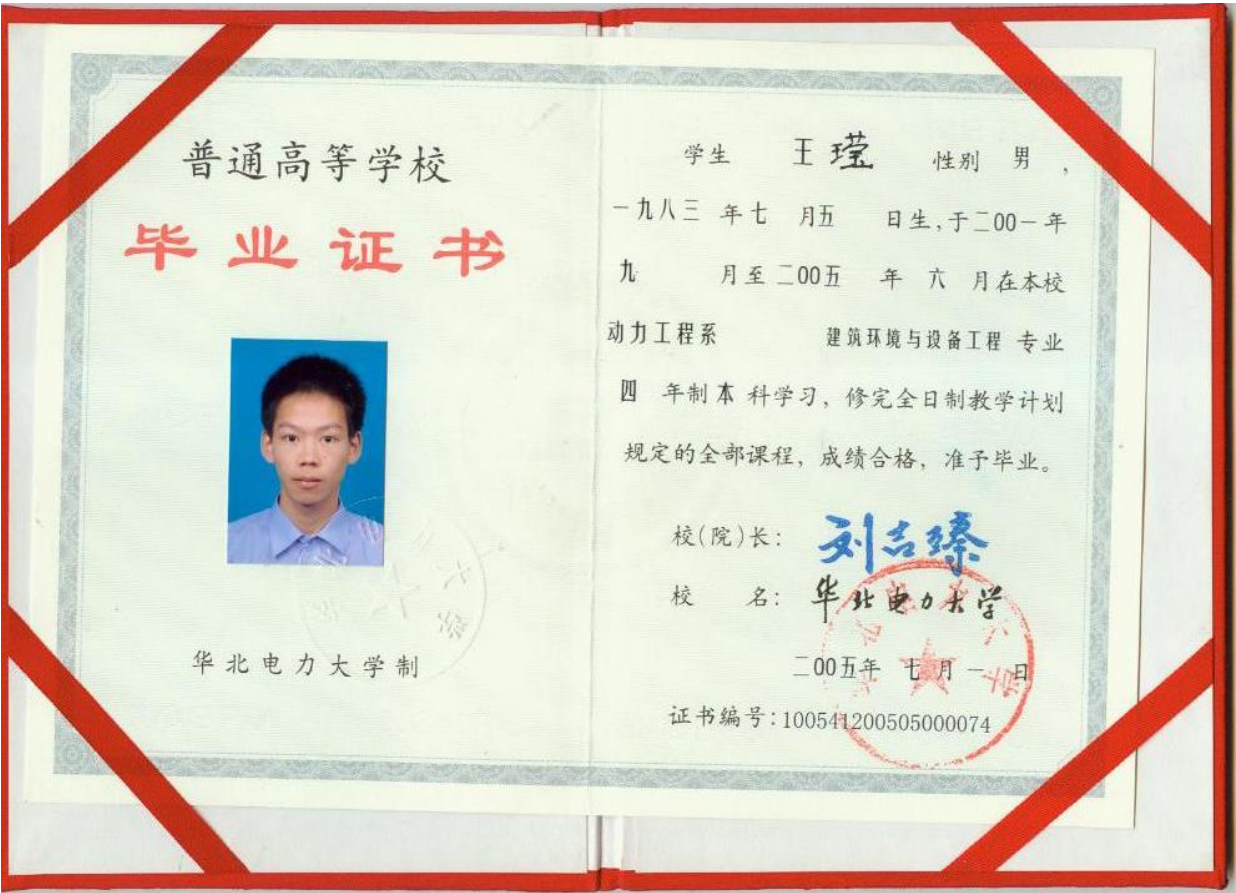 普通高等学校
毕业证书
华北电力大学制
学生 王莹 性别 男,
一九八三 年七 月五 日生,于二00一年
九 月至二00五 年 六 月在本校
动力工程系 建筑环境与设备工程 专业
四 年制本科学习，修完全日制教学计划
规定的全部课程，成绩合格，准予毕业。
校(院)长: 刘吉臻
校 名: 华北电力大学
二00五年 七月一日
证书编号:100541200505000074